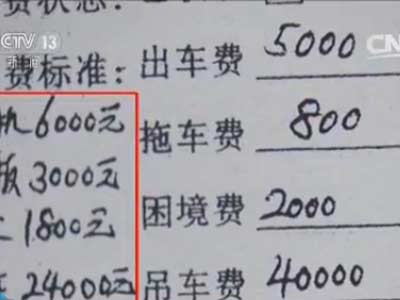 CCTV 13
新闻
费状态:
CN
费标准: 出车费 5000
6000元 拖车费 800
板 3000元
1800元 困境费 2000
24000元 吊车费 40000